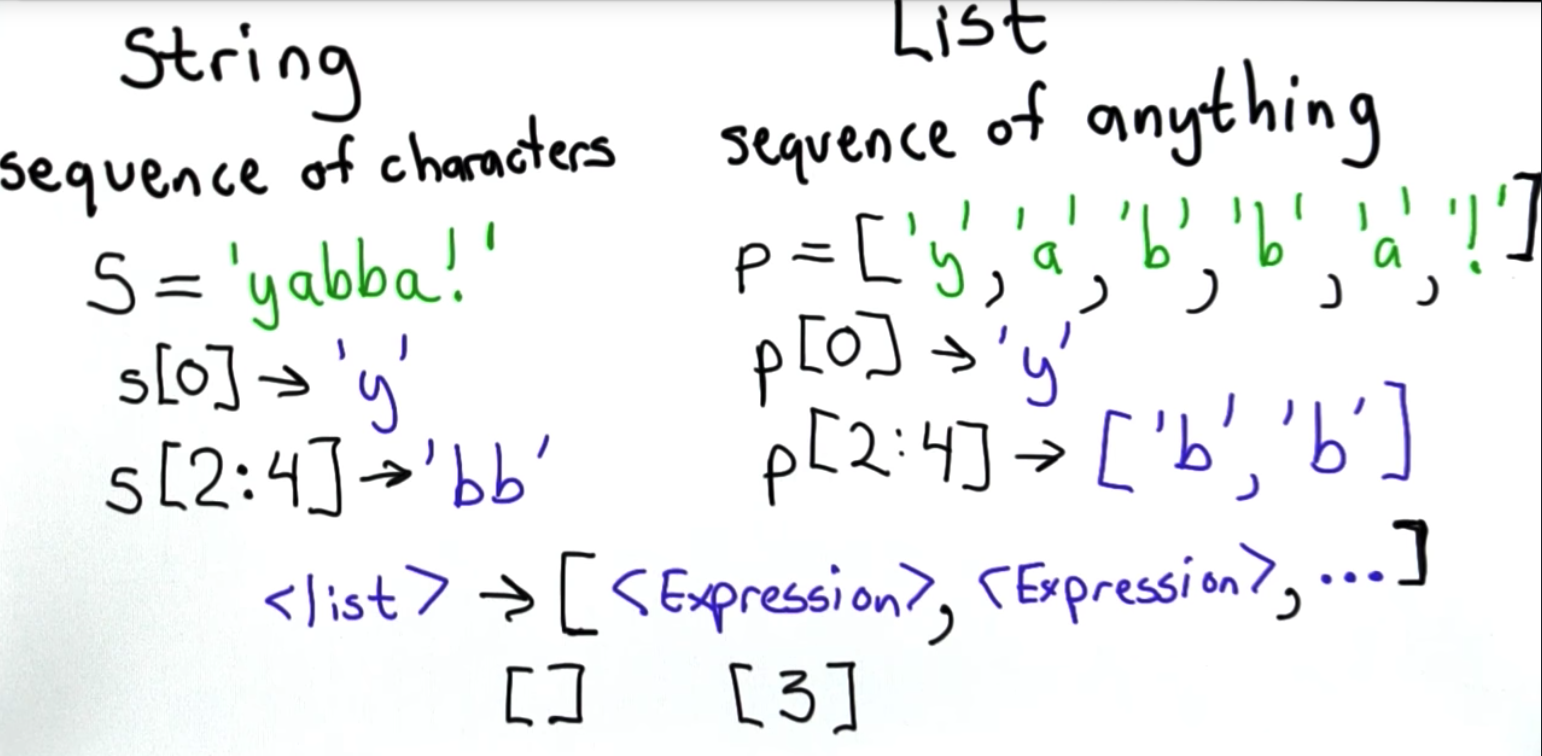 String
sequence of characters
S = 'yabba!'
s[0] → 'y'
s[2:4] → 'bb'
List
sequence of anything
p = ['y', 'a', 'b', 'b', 'a', '!']
p[0] → 'y'
p[2:4] → ['b', 'b']
<list> → [<Expression>, <Expression>, ...]
[] [3]